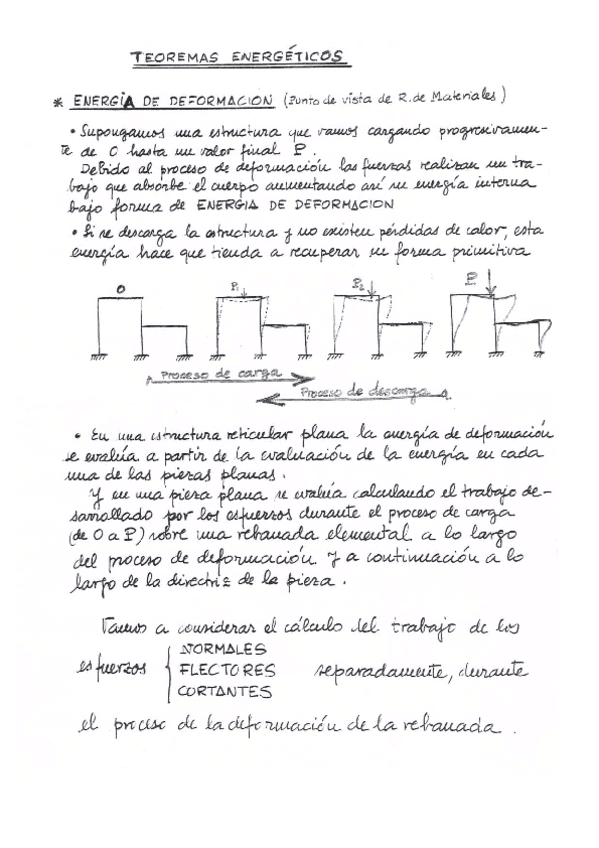 TEOREMAS ENERGÉTICOS
* ENERGÍA DE DEFORMACION (Punto de vista de R. de Materiales)
• Supongamos una estructura que vamos cargando progresivamen-
te de 0 hasta un valor final P.
Debido al proceso de deformación las fuerzas realizan un tra-
bajo que absorbe el cuerpo aumentando así su energía interna
bajo forma de ENERGIA DE DEFORMACION
• Si se descarga la estructura y no existen pérdidas de calor, esta
energía hace que tienda a recuperar su forma primitiva
0 P1 P2 P
Proceso de carga
Proceso de descarga
• En una estructura reticular plana la energía de deformación
se evalúa a partir de la evaluación de la energía en cada
una de las piezas planas.
Y en una pieza plana se evalúa calculando el trabajo de-
sarrollado por los esfuerzos durante el proceso de carga
(de 0 a P) sobre una rebanada elemental a lo largo
del proceso de deformación y a continuación a lo
largo de la directriz de la pieza.
Vamos a considerar el cálculo del trabajo de los
NORMALES
esfuerzos FLECTORES separadamente, durante
CORTANTES
el proceso de la deformación de la rebanada.